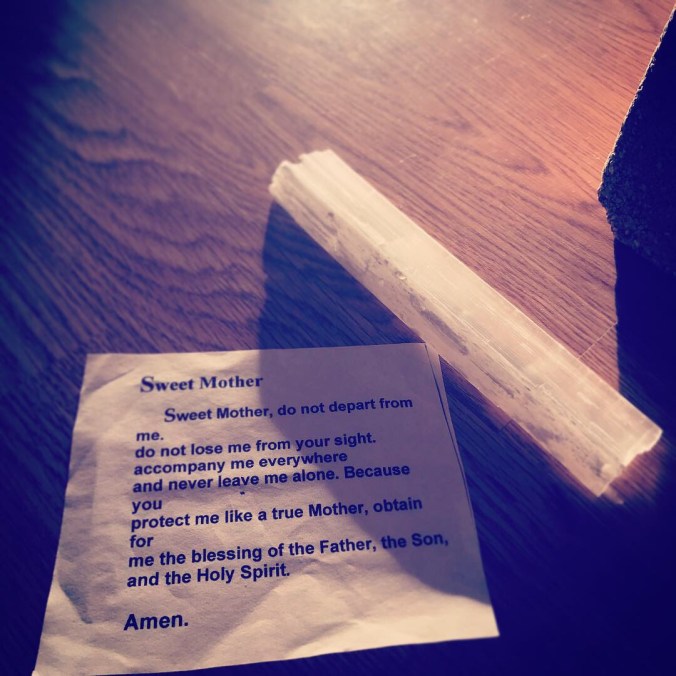 Sweet Mother
Sweet Mother, do not depart from
me.
do not lose me from your sight.
accompany me everywhere
and never leave me alone. Because
you
protect me like a true Mother, obtain
for
me the blessing of the Father, the Son,
and the Holy Spirit.
Amen.